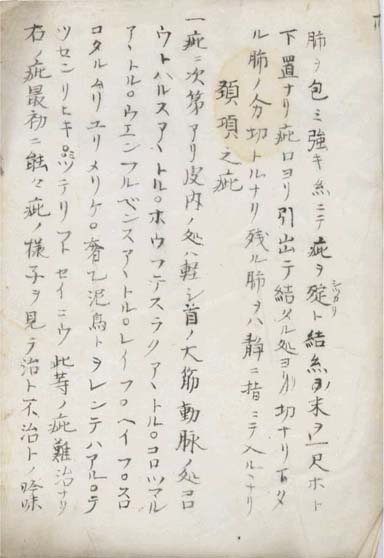 肺ヲ包ミ強キ糸ニテ疵ヲ聢ト結糸ノ末ヲ一尺ホト
シカリ
下置ナリ疵口ヨリ引出テ結メル処ヨリ切ナリ下タ
ル肺ノ分切トルナリ残ル肺ヲハ静ニ指ニテ入ルナリ
頚項之疵
一疵ニ次第アリ皮内ノ処ハ軽シ首ノ大筋動脉ノ処コロ
ウトハルスアヽトル。ホウフテスラク アヽトル。コロツマル
アヽトル。ウエンフルベンスアヽトル。レイフ。ヘイフ。スロ
コタル ユリメリケ。奢 泥烏トヲレンテハアル。テ
ツセンリヒキ テリフト セイニウ 此等ノ疵難治ナリ
右ノ疵最初ニ能々疵ノ様子ヲ見テ治ト不治トノ 味